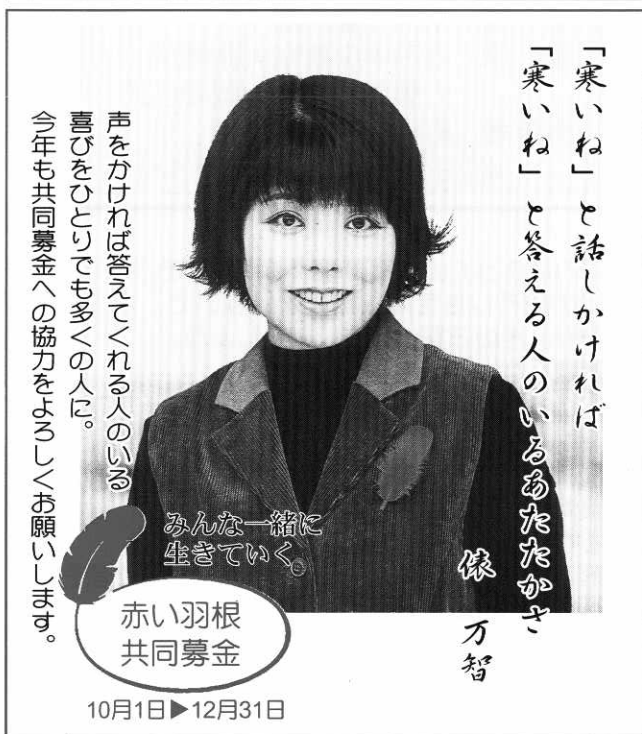 「寒いね」と話しかければ
「寒いね」と答える人のいるあたたかさ
俵 万智
声をかければ答えてくれる人のいる
喜びをひとりでも多くの人に。
今年も共同募金への協力をよろしくお願いします。
みんな一緒に
生きていく
赤い羽根
共同募金
10月1日▶12月31日